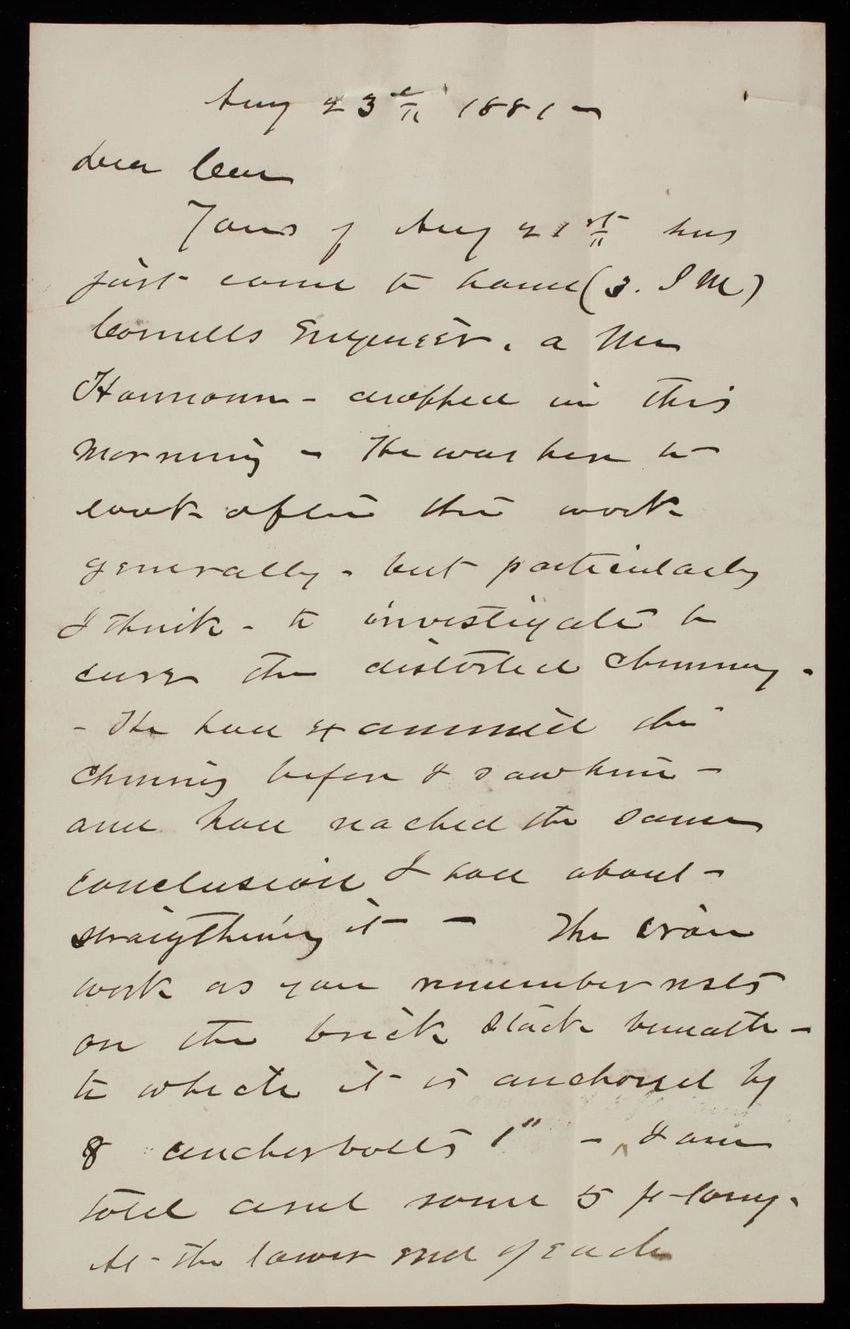 Aug 23d 1881 -
Dear Casey
Yours of Aug 21st has
just come to hand (3. P M)
Cornells Engineer. a Mr
- dropped in this
morning - He was here to
look after the work
generally - but particularly
I think - to investigate &
cure the distorted chimney -
- He had examined the
chimney before I saw him -
and had reached the same
conclusion I had about
straigthening it - The iron
work as you remember rests
on the brick stack beneath -
to which it is anchored by
8 anchor bolts 1" - I am
told and some 5 ft long.
At the lower end of each